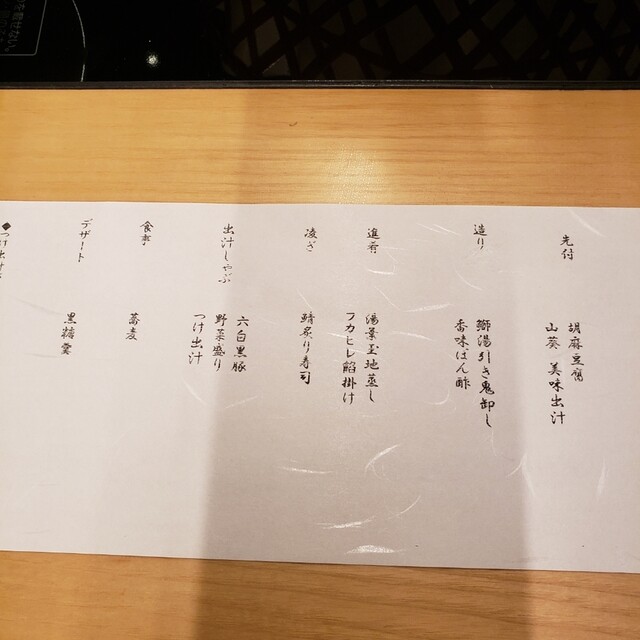 先付
胡麻豆腐
山葵 美味出汁
造り
鰤湯引き鬼卸し
香味ぽん酢
進肴
湯葉玉地蒸し
フカヒレ餡掛け
凌ぎ
鯖炙り寿司
出汁しゃぶ
六白黒豚
野菜盛り
つけ出汁
食事
蕎麦
デザート
黒糖葛